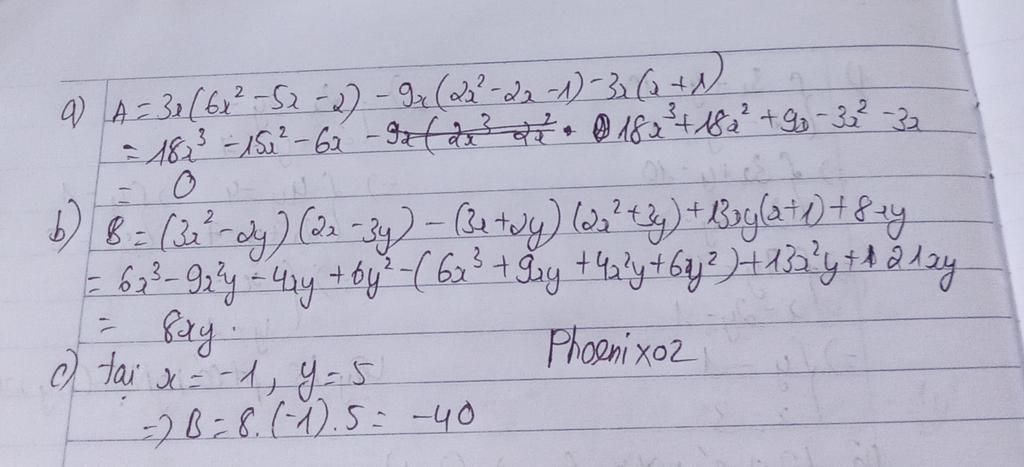 a) A = 3x(6x² - 5x - 2) - 9x(2x² - 2x - 1) - 3x(x + 1)
= 18x³ - 15x² - 6x - 18x³ + 18x² + 9x - 3x² - 3x
= 0
b) B = (3x² - 2y)(2x - 3y) - (3x + 2y)(2x² + 3y) + 13xy(x + 1) + 8xy
= 6x³ - 9x²y - 4xy + 6y² - (6x³ + 9xy + 4x²y + 6y²) + 13x²y + 21xy
= 8xy.
Phoenix02
c) tại x = -1, y = 5
=> B = 8.(-1).5 = -40